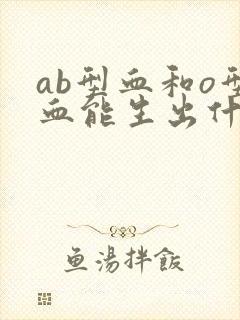 ab型血和o型
血能生出什
鱼湯拌飯